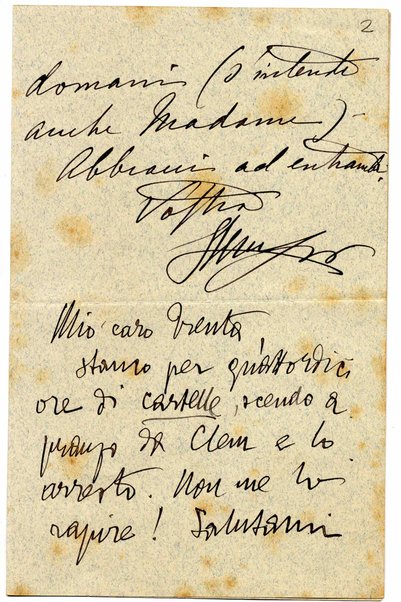 2
domani (s'intende
anche Madame) –
Abbracci ad entrambi.
Vostro
Mio caro Trenta
stanco per quattordici
ore di cartelle, scendo a
pranzo da Clem e lo
arresto. Non me lo
rapire! Salutami